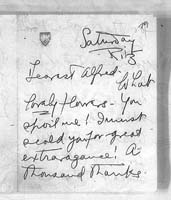 Saturday
Dearest Alfred -
What
lovely flowers - You
spoil me! I must
scold you for great
extravagance! A
thousand thanks.